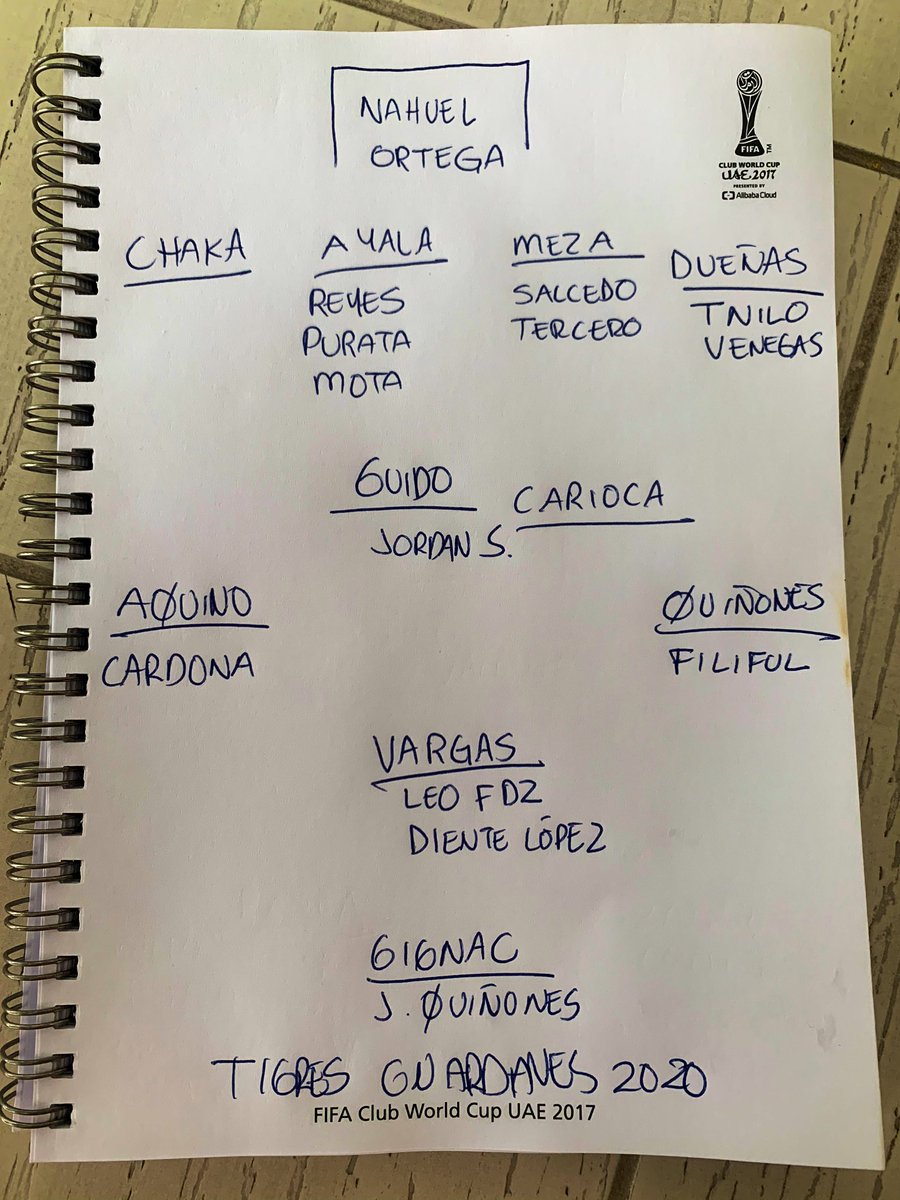 NAHUEL
ORTEGA
FIFA TM
CLUB WORLD CUP
UAE 2017
PRESENTED BY
Alibaba Cloud
CHAKA
AYALA
REYES
PURATA
MOTA
MEZA
SALCEDO
TERCERO
DUEÑAS
TNILO
VENEGAS
GUIDO
JORDAN S.
CARIOCA
AQUINO
CARDONA
QUIÑONES
FILIFUL
VARGAS
LEO FDZ
DIENTE LÓPEZ
GIGNAC
J. QUIÑONES
TIGRES GUARDIANES 2020
FIFA Club World Cup UAE 2017